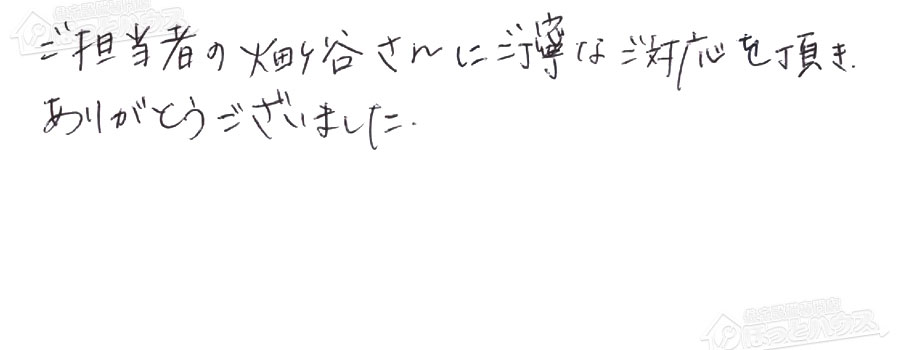 ご担当者の畑ヶ谷さんにご丁寧なご対応を頂き.
ありがとうございました.
ほっとハウス